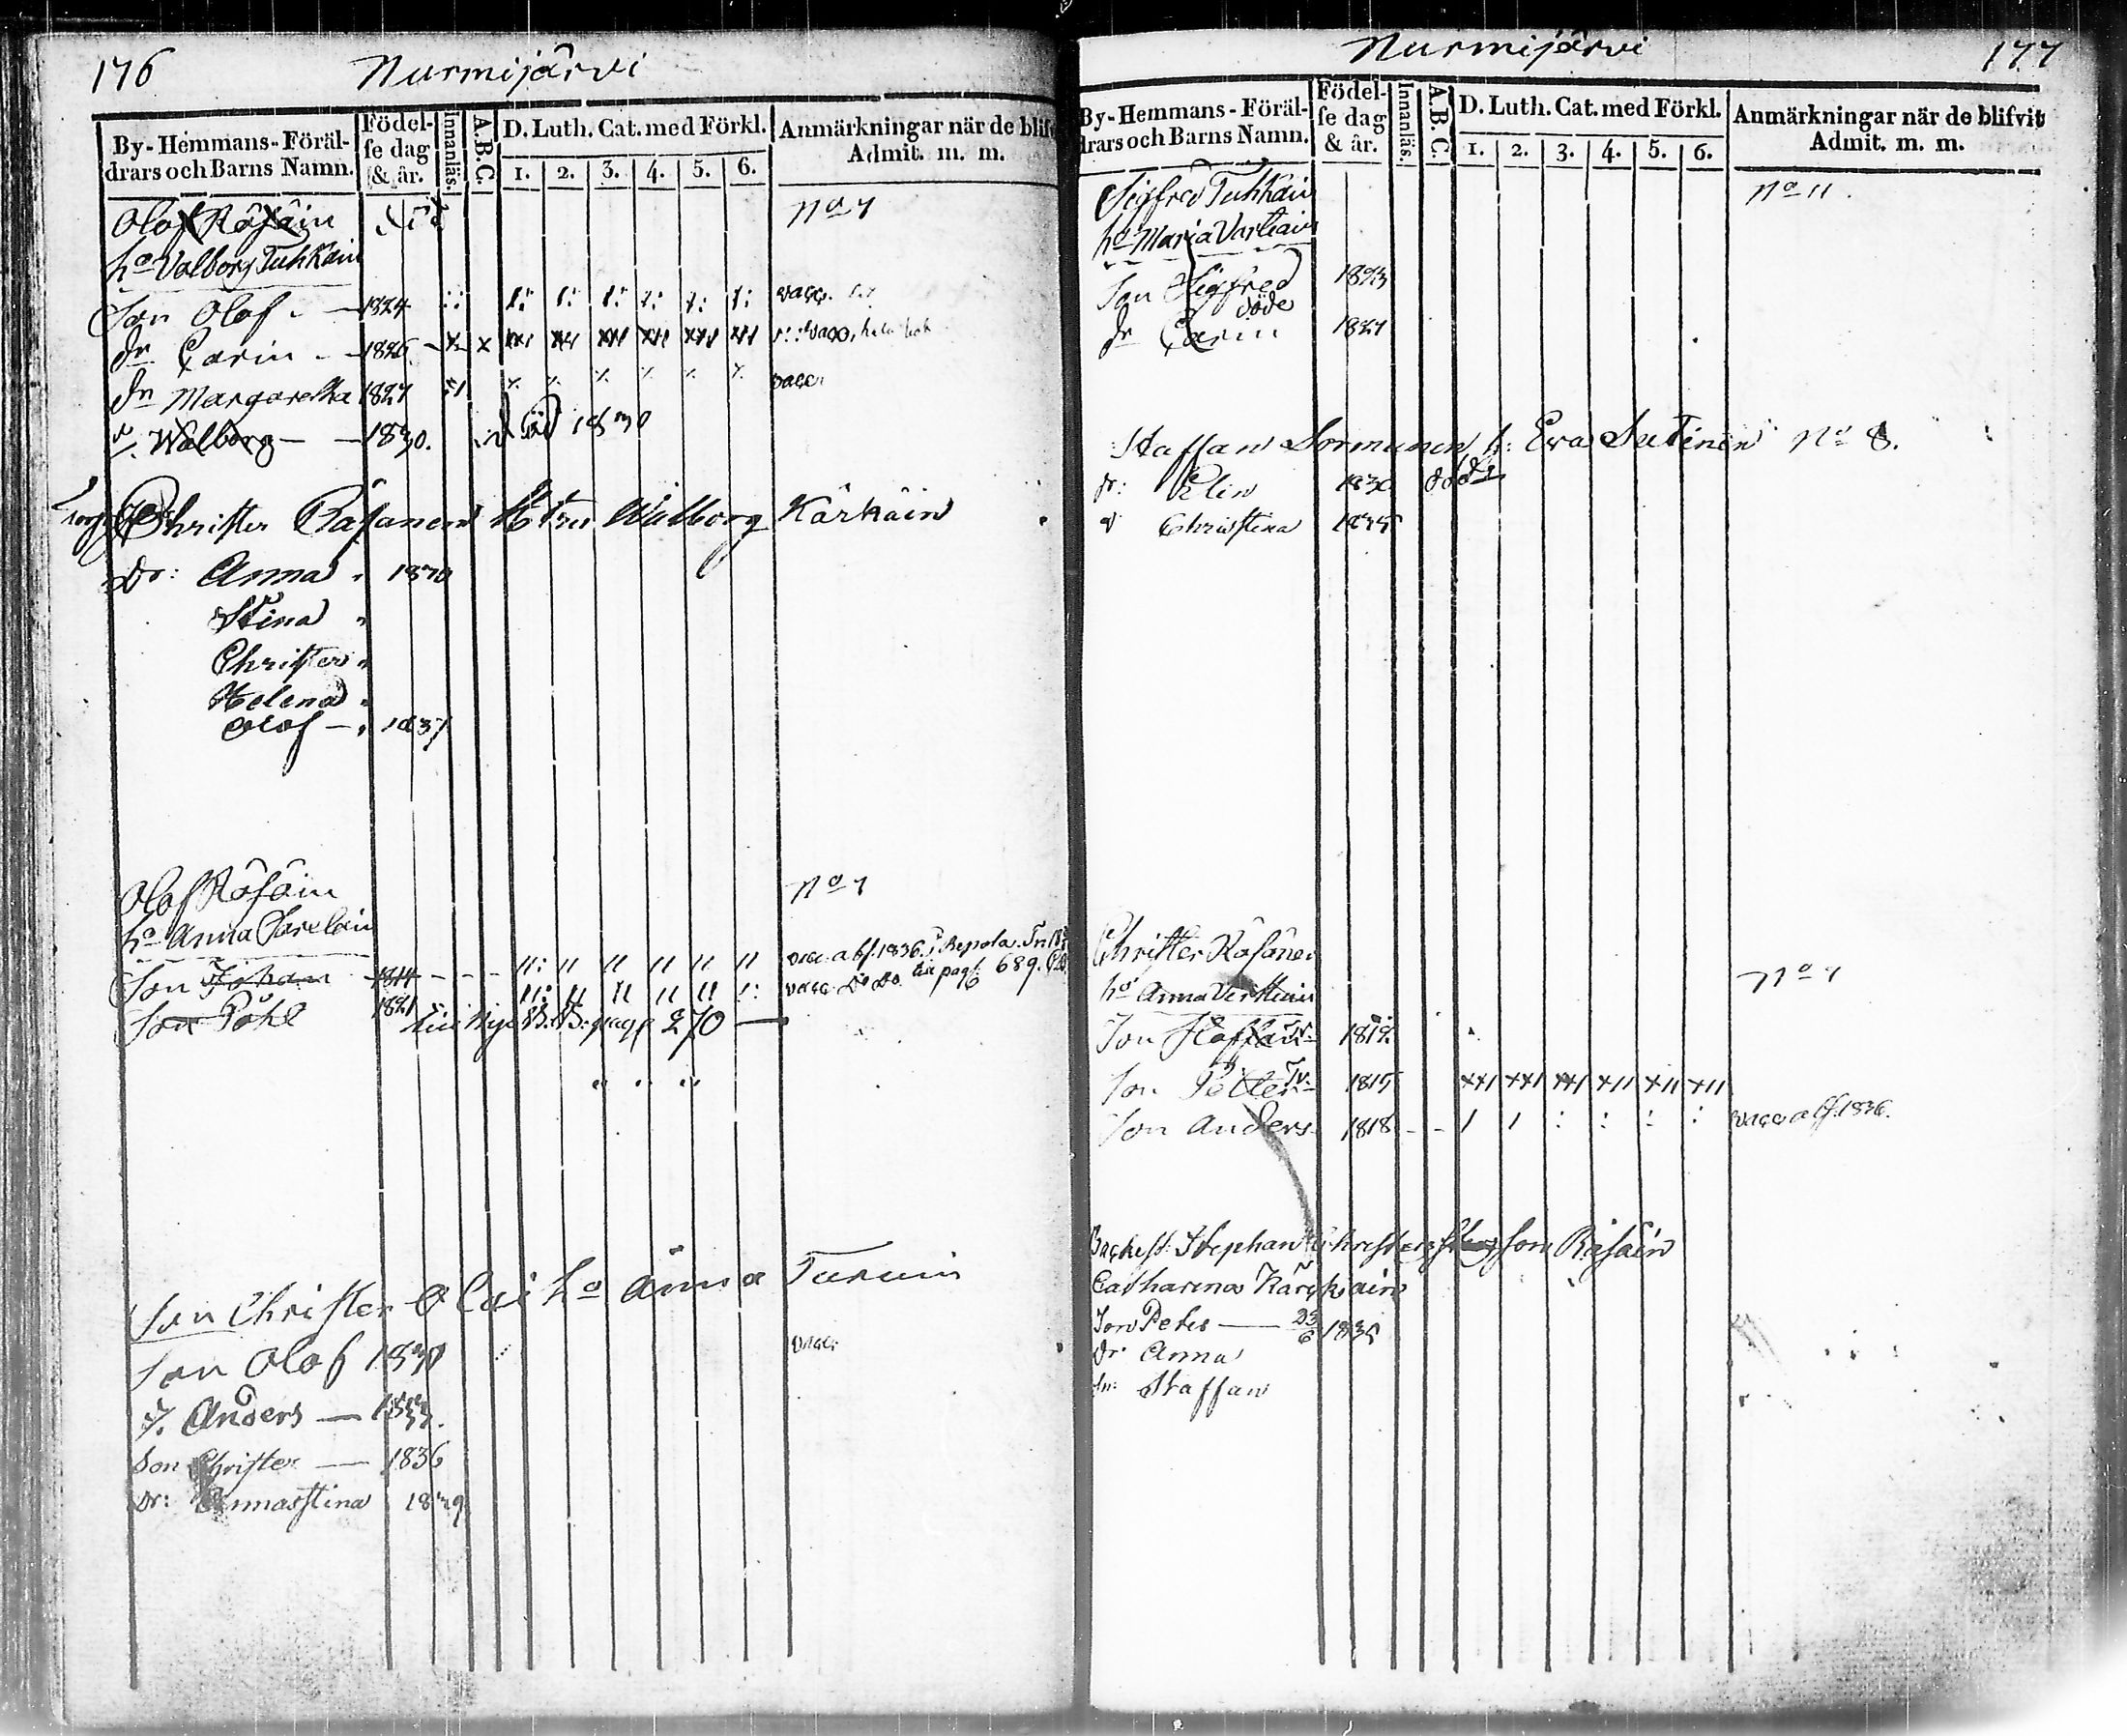 176 Nurmijärvi
By-Hemmans-Föräl-
drars och Barns Namn.
Födel-
se dag
& år.
Innanläs.
A.B.C.
D. Luth. Cat. med Förkl.
1. 2. 3. 4. 5. 6.
Anmärkningar när de blifvit
Admit. m. m.
Olof Räsäin död No 7
ho Valborg Tuhkain
Son Olof 1824 vacc.
dr Carin 1826 x vacc.
dr Margaretha 1827 vacc.
dr. Walborg 1830. död 1830
Christer Räsänen Hstru Walborg Kärkäin
Dr: Anna 1830
Stina
Christer
Helena
Olof 1837
Olof Räsäin No 7
ho Anna Sarelain
Son Johan 1814 vacc. abs. 1836. i Repola
Son Påhl 1821 vacc. Do Do. Se pag: 689.
Nya B: B: pag: 270
Son Christer Olai ho Anna Turuin
Son Olof 1830 vacc.
S. Anders 1833.
Son Christer 1836
Dr: Annastina 1839
Nurmijärvi 177
By-Hemmans-Föräl-
drars och Barns Namn.
Födel-
se dag
& år.
Innanläs.
A.B.C.
D. Luth. Cat. med Förkl.
1. 2. 3. 4. 5. 6.
Anmärkningar när de blifvit
Admit. m. m.
Sigfred Tuhkain No 11.
ho Maria Vartiain
Son Sigfred 1823
döde
dr Carin 1827
Staffan Sormunen h: Eva Sutinen No 8.
dr: Elin 1830 död
dr Christina 1835
Christer Räsänen
ho Anna Vertiain No 7
Son Staffan Tv. 1812
Son Petter Tv. 1815
Son Anders 1818 vacc. abs. 1836.
Backst: Stephan Christersson Räsäin
Catharina Kärkkäin
Son Peter 23/6 1835
Dr Anna
Sn: Staffan